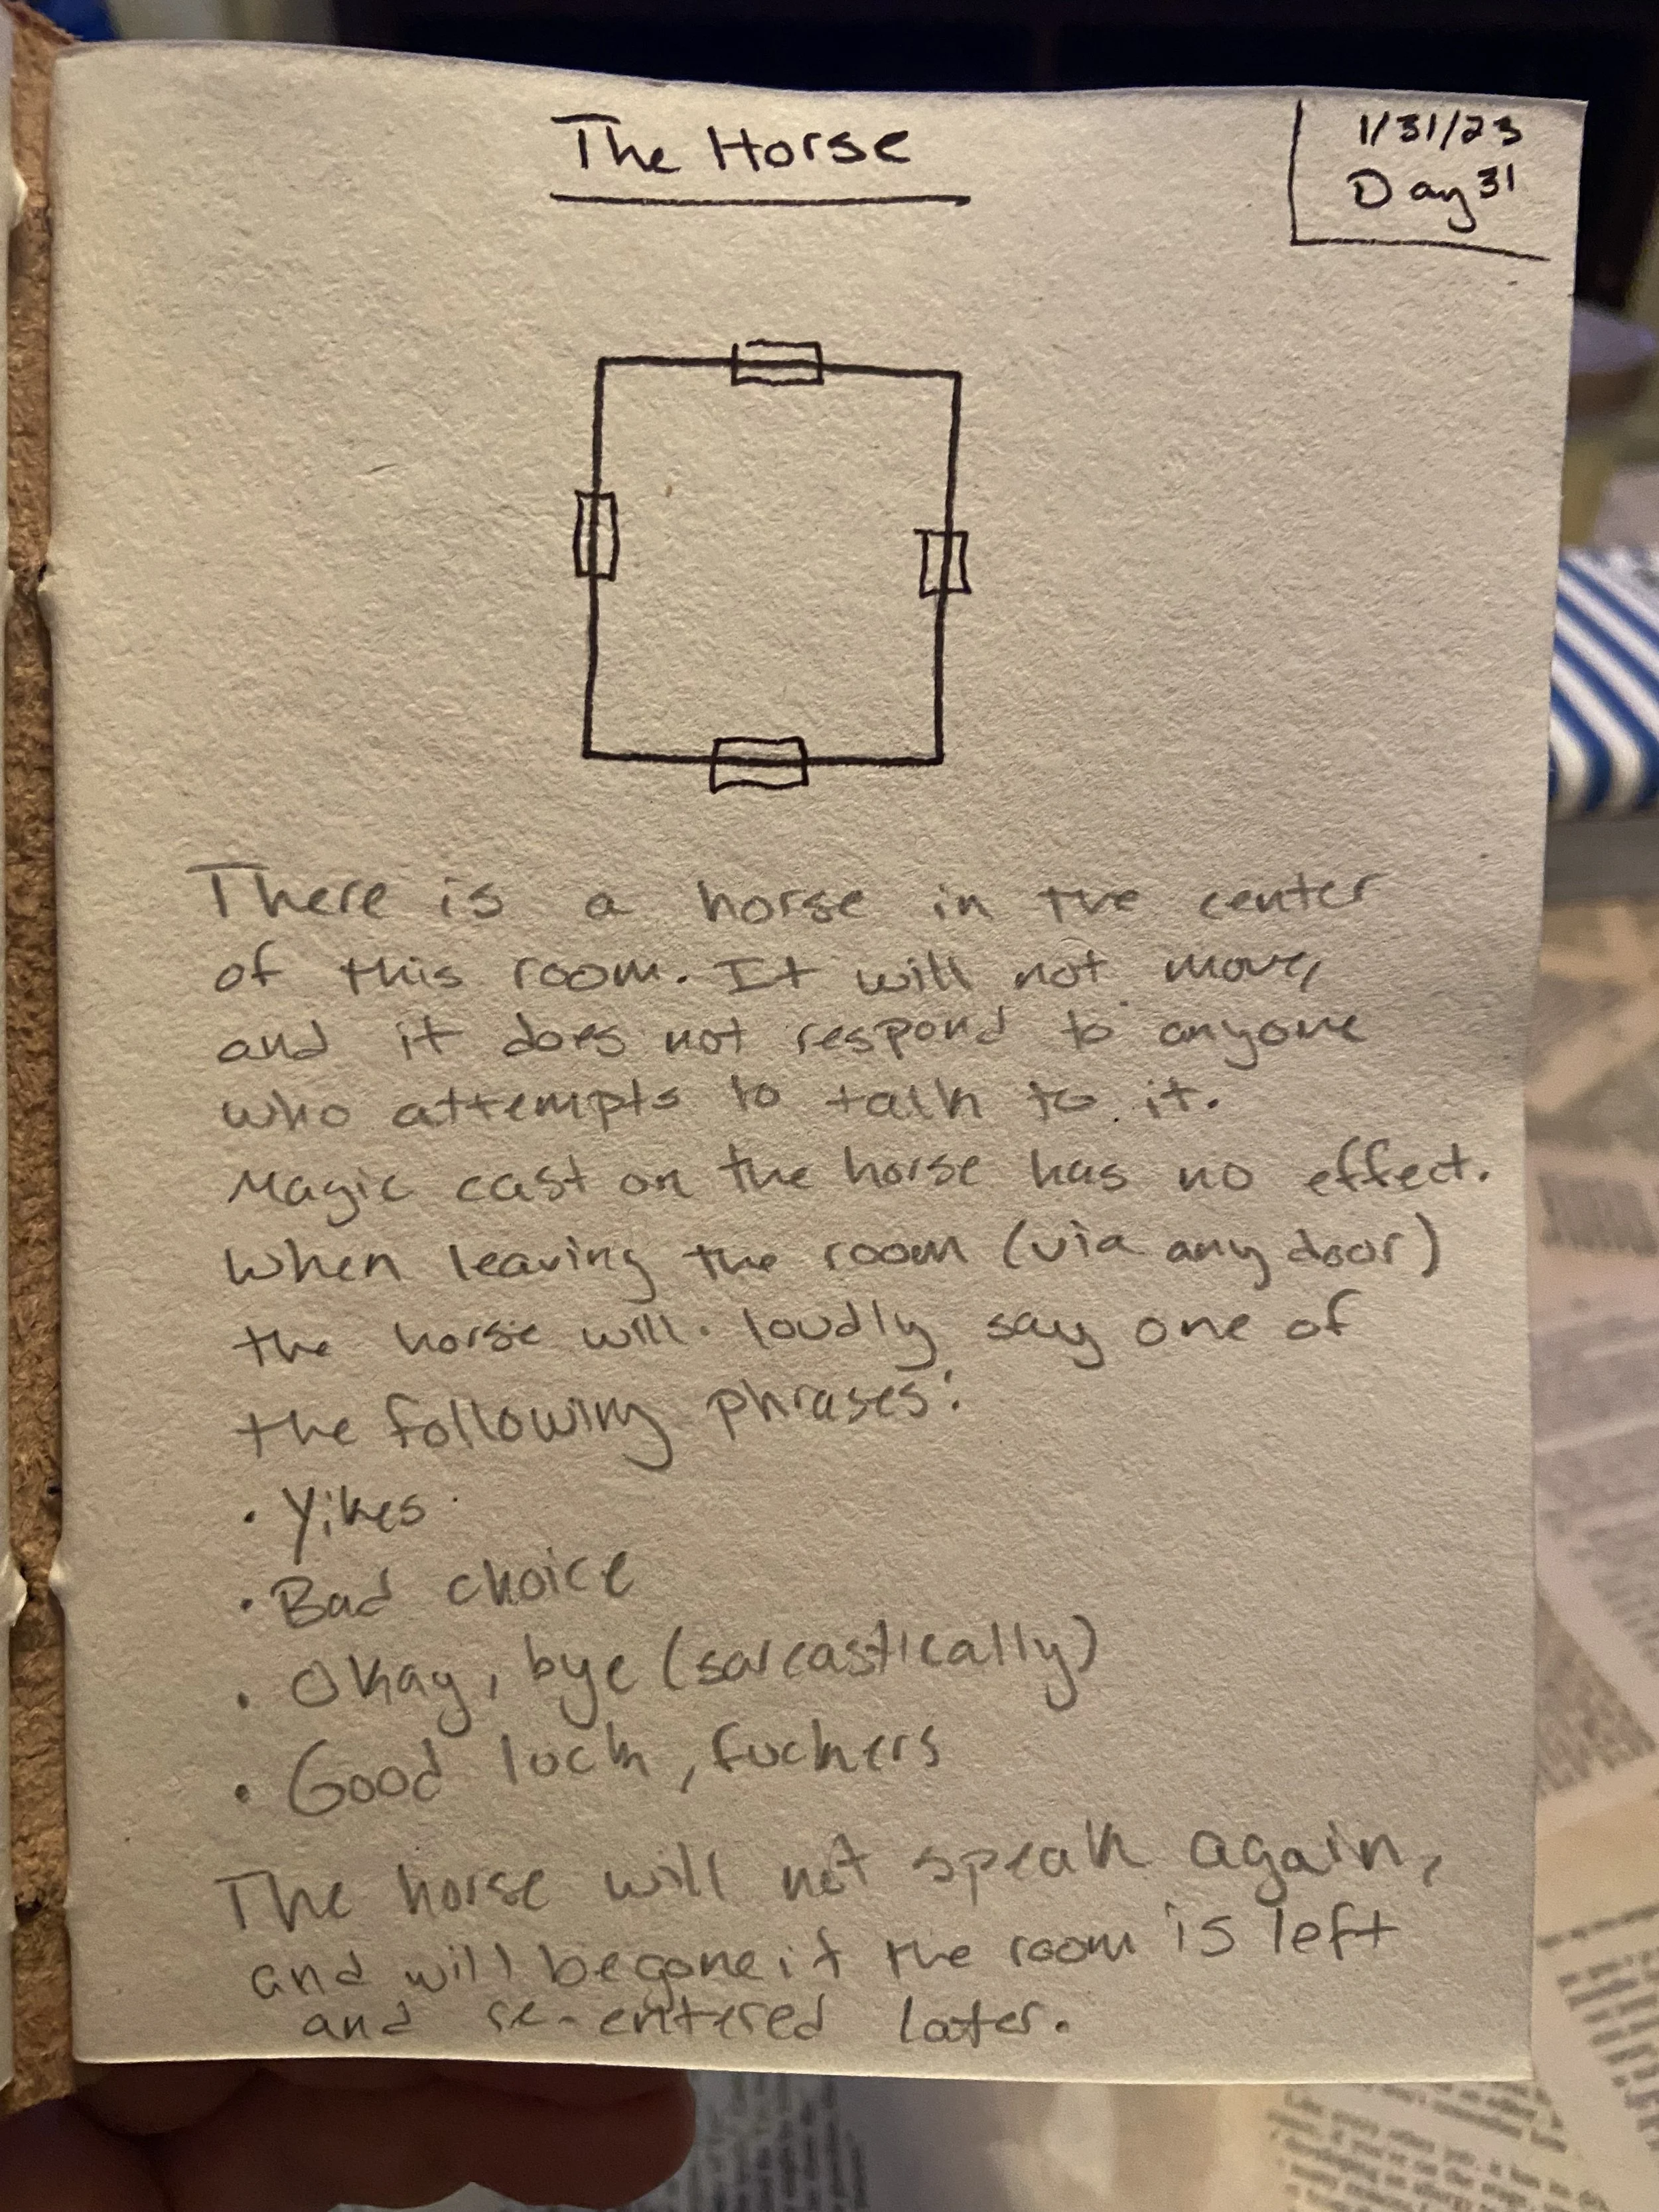 The Horse
1/31/23
Day 31
There is a horse in the center
of this room. It will not move,
and it does not respond to anyone
who attempts to talk to it.
Magic cast on the horse has no effect.
When leaving the room (via any door)
the horse will loudly say one of
the following phrases:
• Yikes
• Bad choice
• Okay, bye (sarcastically)
• Good luck, fuckers
The horse will not speak again,
and will be gone if the room is left
and re-entered later.